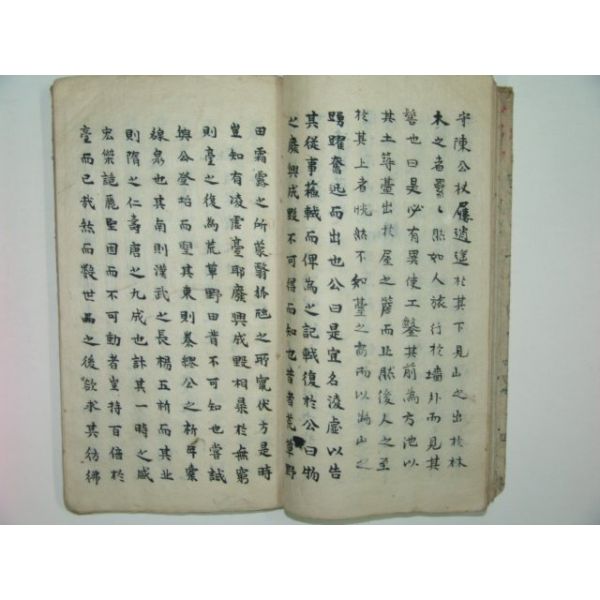 守陳公杖屨逍遙於其下見山之出於林
木之者纍〻然如人旅行於墻外而見其
髻也曰是必有異使工鑿其前為方池以
其土等臺出於屋之簷而止然後人之至
於其上者恍然不知臺之高而以為山之
踴躍奮迅而出也公曰是宜名凌虛以告
其從事蘇軾而俾為之記軾復於公曰物
之廢興成毀不可得而知也昔者荒草野
田霜露之所蒙翳狐虺之所竄伏方是時
豈知有凌虛臺耶廢興成毀相尋於無窮
則臺之復為荒草野田昔不可知也嘗試
與公登培而望其東則秦穆公之祈年橐
泉也其南則漢武之長楊五柞而其北
則隋之仁壽唐之九成也計其一時之盛
宏傑詭麗堅固而不可動者豈特百倍於
臺而已哉然而數世之後欲求其彷彿